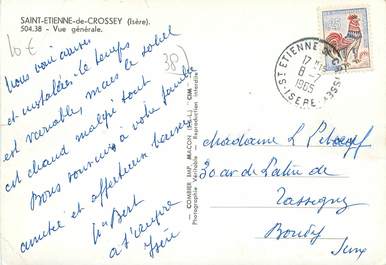 SAINT-ETIENNE-de-CROSSEY (Isère).
504.38 - Vue générale.
10 €
38
Nous voici
et installées. Le temps
est variable, mais le soleil
est chaud malgré tout
Bons souvenirs à votre famille
amitié et affectueux baisers
a St
Isère
— COMBIER IMP. MACON (S.-&-L.) "CIM"
Photographie Véritable - Reproduction interdite
ST ETIENNE DE CROSSEY
17 H
8-7
1965
ISERE
Madame
30 av de Lattre de
Tassigny
Bondy
Seine